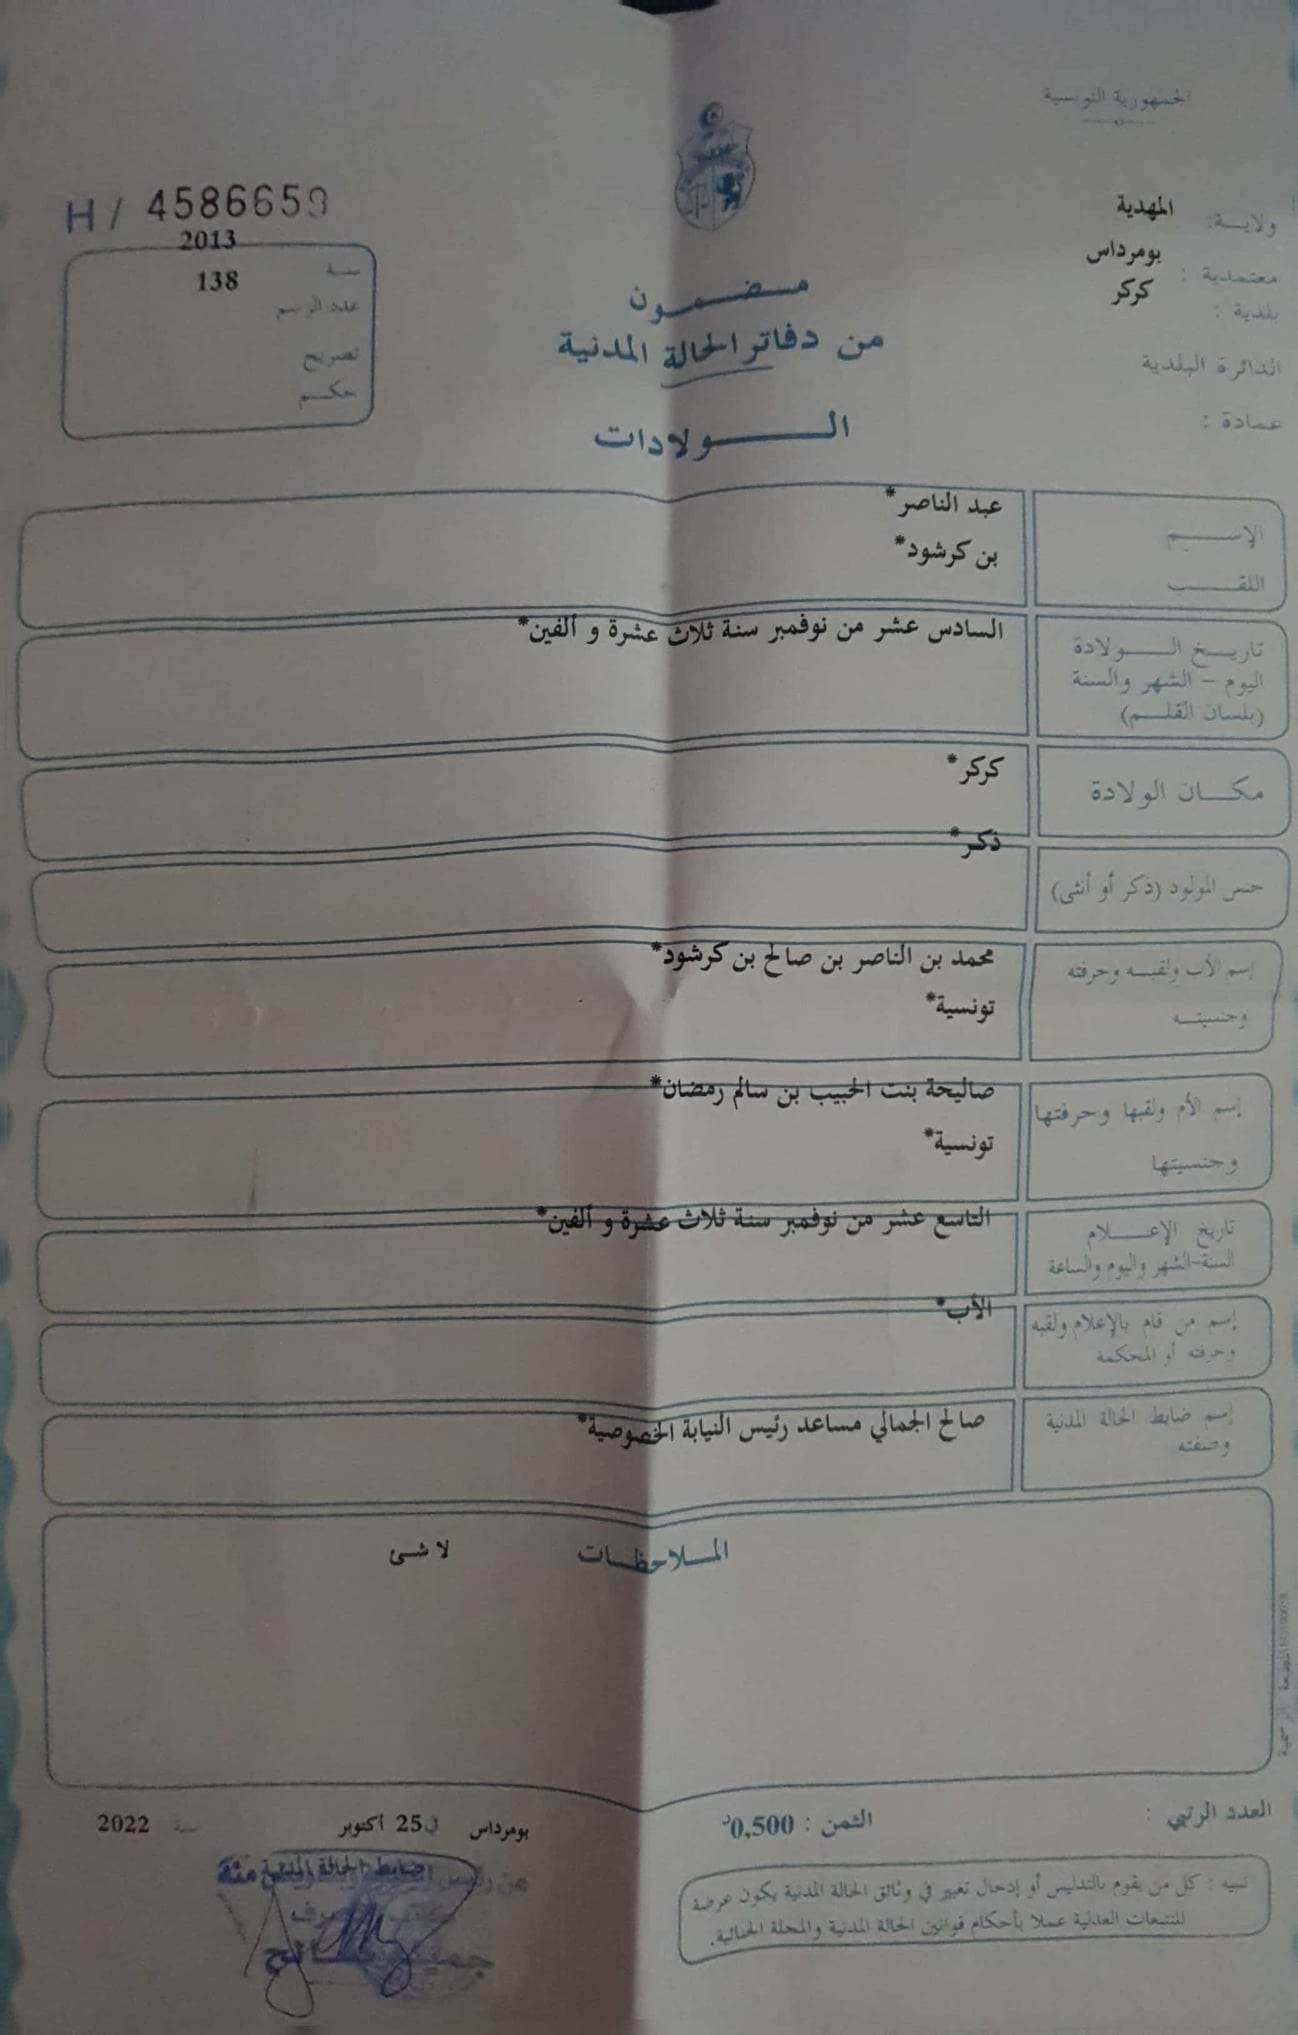 الجمهورية التونسية
ولايـــة: المهدية
معتمدية : بومرداس
بلدية : كركر
الدائرة البلدية
عمادة :
H / 4586659
سنة 2013
عدد الرسم 138
تصريح
حكم
مضمون
من دفاتر الحالة المدنية
الولادات
الإسم عبد الناصر*
اللقب بن كرشود*
تاريخ الولادة السادس عشر من نوفمبر سنة ثلاث عشرة و ألفين*
اليوم - الشهر والسنة
(بلسان القلم)
مكان الولادة كركر*
جنس المولود (ذكر أو أنثى) ذكر*
إسم الأب ولقبه وحرفته محمد بن الناصر بن صالح بن كرشود*
وجنسيته تونسية*
إسم الأم ولقبها وحرفتها صاليحة بنت الحبيب بن سالم رمضان*
وجنسيتها تونسية*
تاريخ الإعلام التاسع عشر من نوفمبر سنة ثلاث عشرة و ألفين*
السنة-الشهر واليوم والساعة
إسم من قام بالإعلام ولقبه الأب*
وحرفته أو المحكمة
إسم ضابط الحالة المدنية صالح الجمالي مساعد رئيس النيابة الخصوصية*
وصفته
الملاحظات لا شئ
العدد الرتبي :
الثمن : 0,500د
بومرداس في 25 أكتوبر سنة 2022
ضابط الحالة المدنية
تنبيه : كل من يقوم بالتدليس أو إدخال تغيير في وثائق الحالة المدنية يكون عرضة
للتتبعات العدلية عملا بأحكام قوانين الحالة المدنية والمجلة الجنائية.